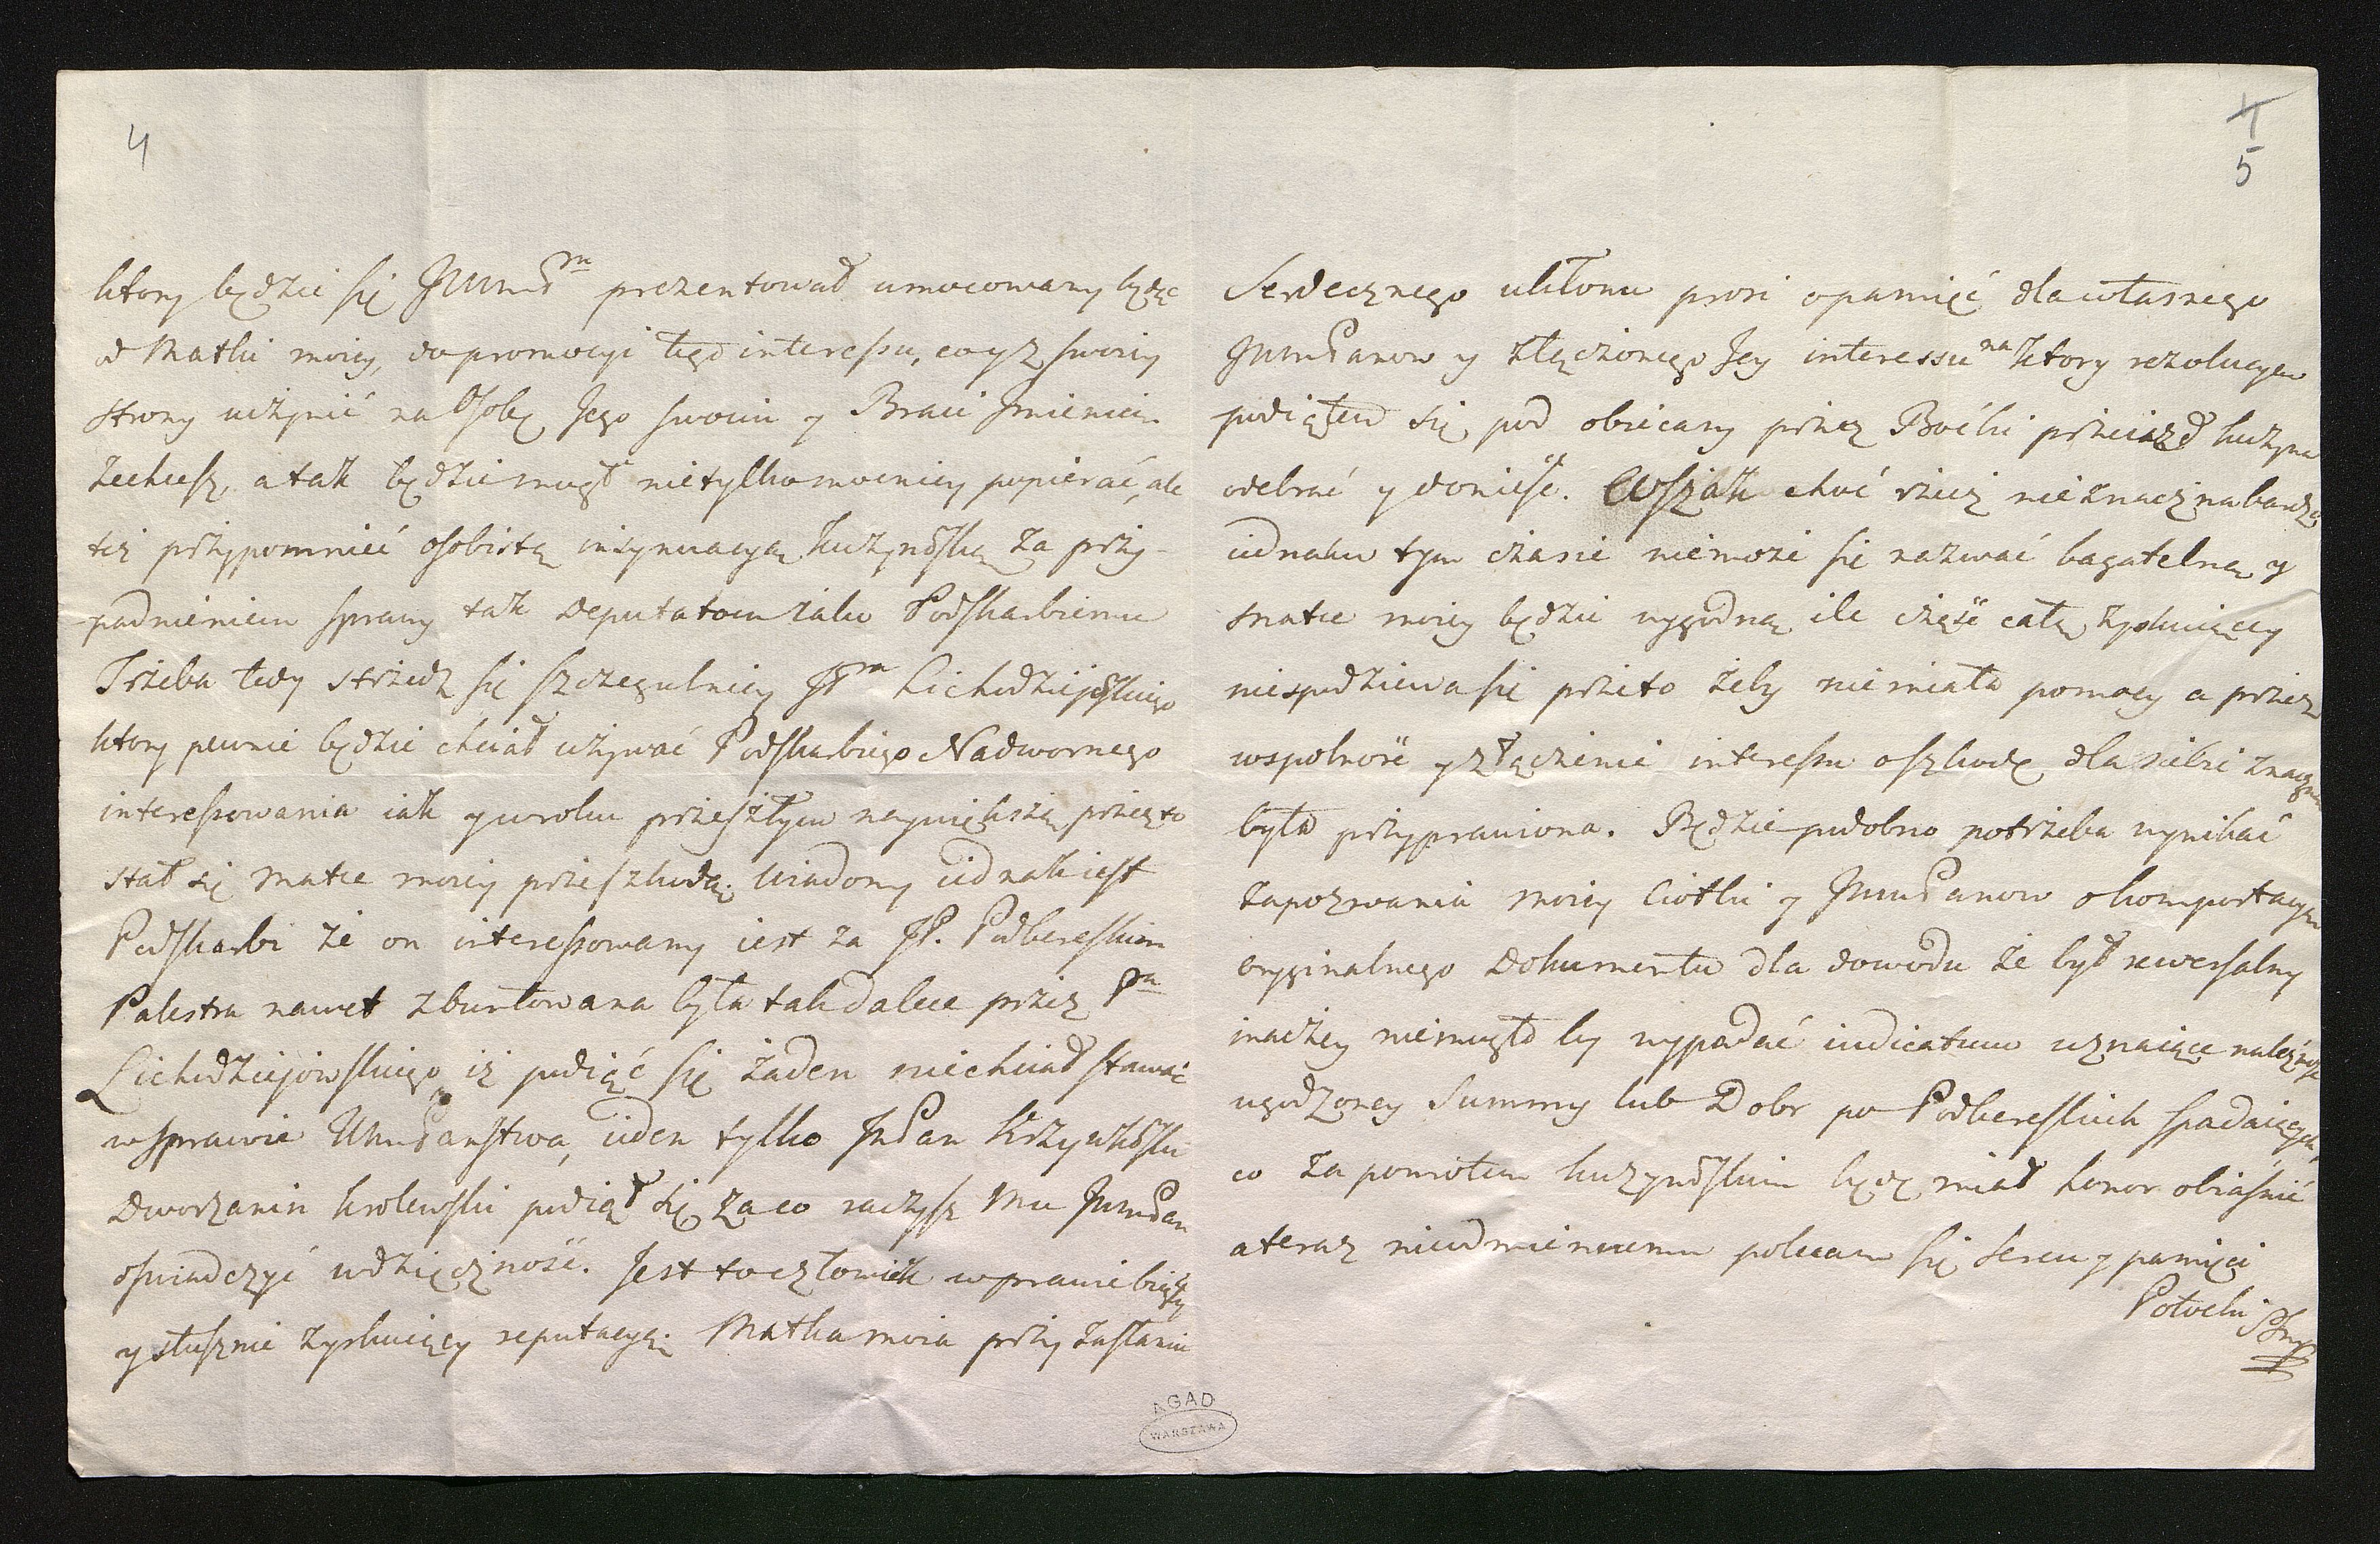 4
ktory będzie się JWmPm prezentował umocowany będąc
od Matki moiey, do promocyi tego interessu, co y z swoiey
strony uczynić na Osobę Jego swoim y Braci Jmieniem
zechcesz, a tak będzie mogł nietylko mocniey popierać, ale
też przypomnieć osobistą insynuacyą kuzyńską za przy-
padnieniem sprawy tak Deputatom iako Podskarbiemu
Trzeba tedy strzedz się szczegulniey JPm Lichodziejowskiego
ktory pewnie będzie chciał używać Podskarbiego Nadwornego
interessowania iak y w roku przeszłym naywiększą przez to
stał się Matce moiey przeszkodą. wiadomy iednak iest
Podskarbi że on interessowany iest za JP. Podbereskim
Palestra nawet zbuntowana była tak dalece przez Pn
Lichodziejowskiego iż podiąć się żaden niechciał stawać
w sprawie WmPaństwa, ieden tylko JmPan Krzywkoski
Dworzanin krolewski podiął się za co raczysz Mu JWmPan
oswiadczyć wdzięcznosć. Jest to człowiek w prawie biegły
y słusznie zyskuiący reputacyą. Matka moia przy zasłaniu
4
5
Serdecznego ukłonu prosi o pamięć dla własnego
JWmPanow y złączonego Jey interessu na ktory rezolucyą
podiąłem się pod obiecany przez Boćki przeiazd kuzyna
odebrać y donieść. Wszak choć rzecz nieznaczna bardzo
iednak w tym czasie niemoże się nazwać bagatelną y
Matce moiey będzie wygodną ile część całą zyskuiącey
niespodziewa się przeto żeby niemiała pomocy a przez
wspolność y złączenie interessu o szkodę dla siebie znaczną
była przyprawiona. Będzie podobno potrzeba wynikać
zapozwania moiey Ciotki y JWmPanow o komportacyą
oryginalnego Dokumentu dla dowodu że był rewersalny
inaczey niemogło by wypadać iudicatum uznaiące należność
ugodzoney Summy lub Dobr po Podbereskich spadaiących,
co za powrotem kuzyńskim będę miał honor obiaśnić
a teraz nieodmiennemu polecam się sercu y pamięci
Potocki
AGAD
WARSZAWA